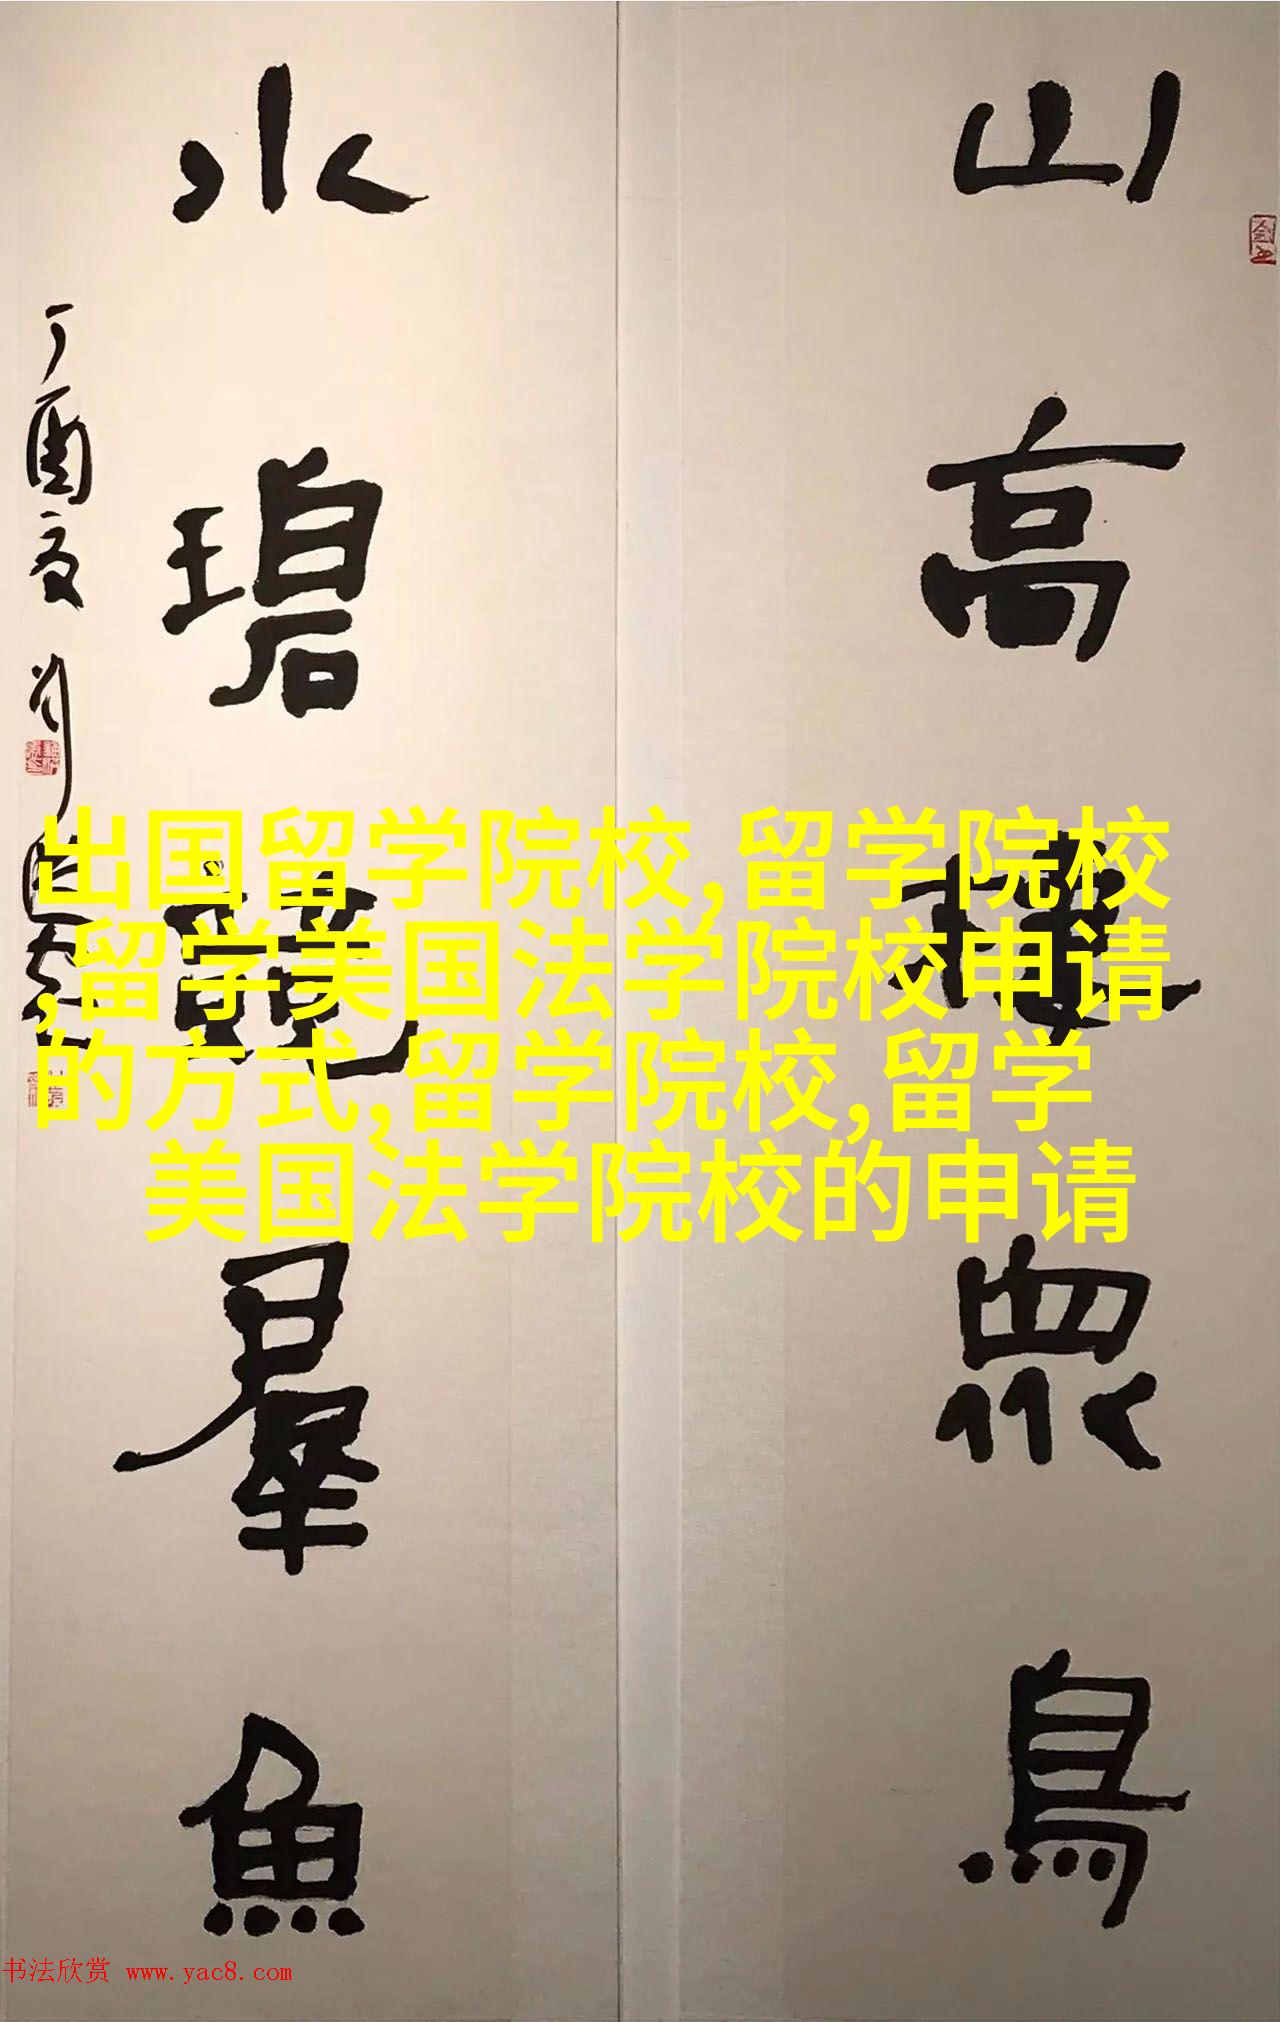 山高眾鳥
水碧羣魚
丁酉夏
出国留学院校,留学院校
,留学美国法学院校申请
的方式,留学院校,留学
美国法学院校的申请
书法欣赏 www.yac8.com